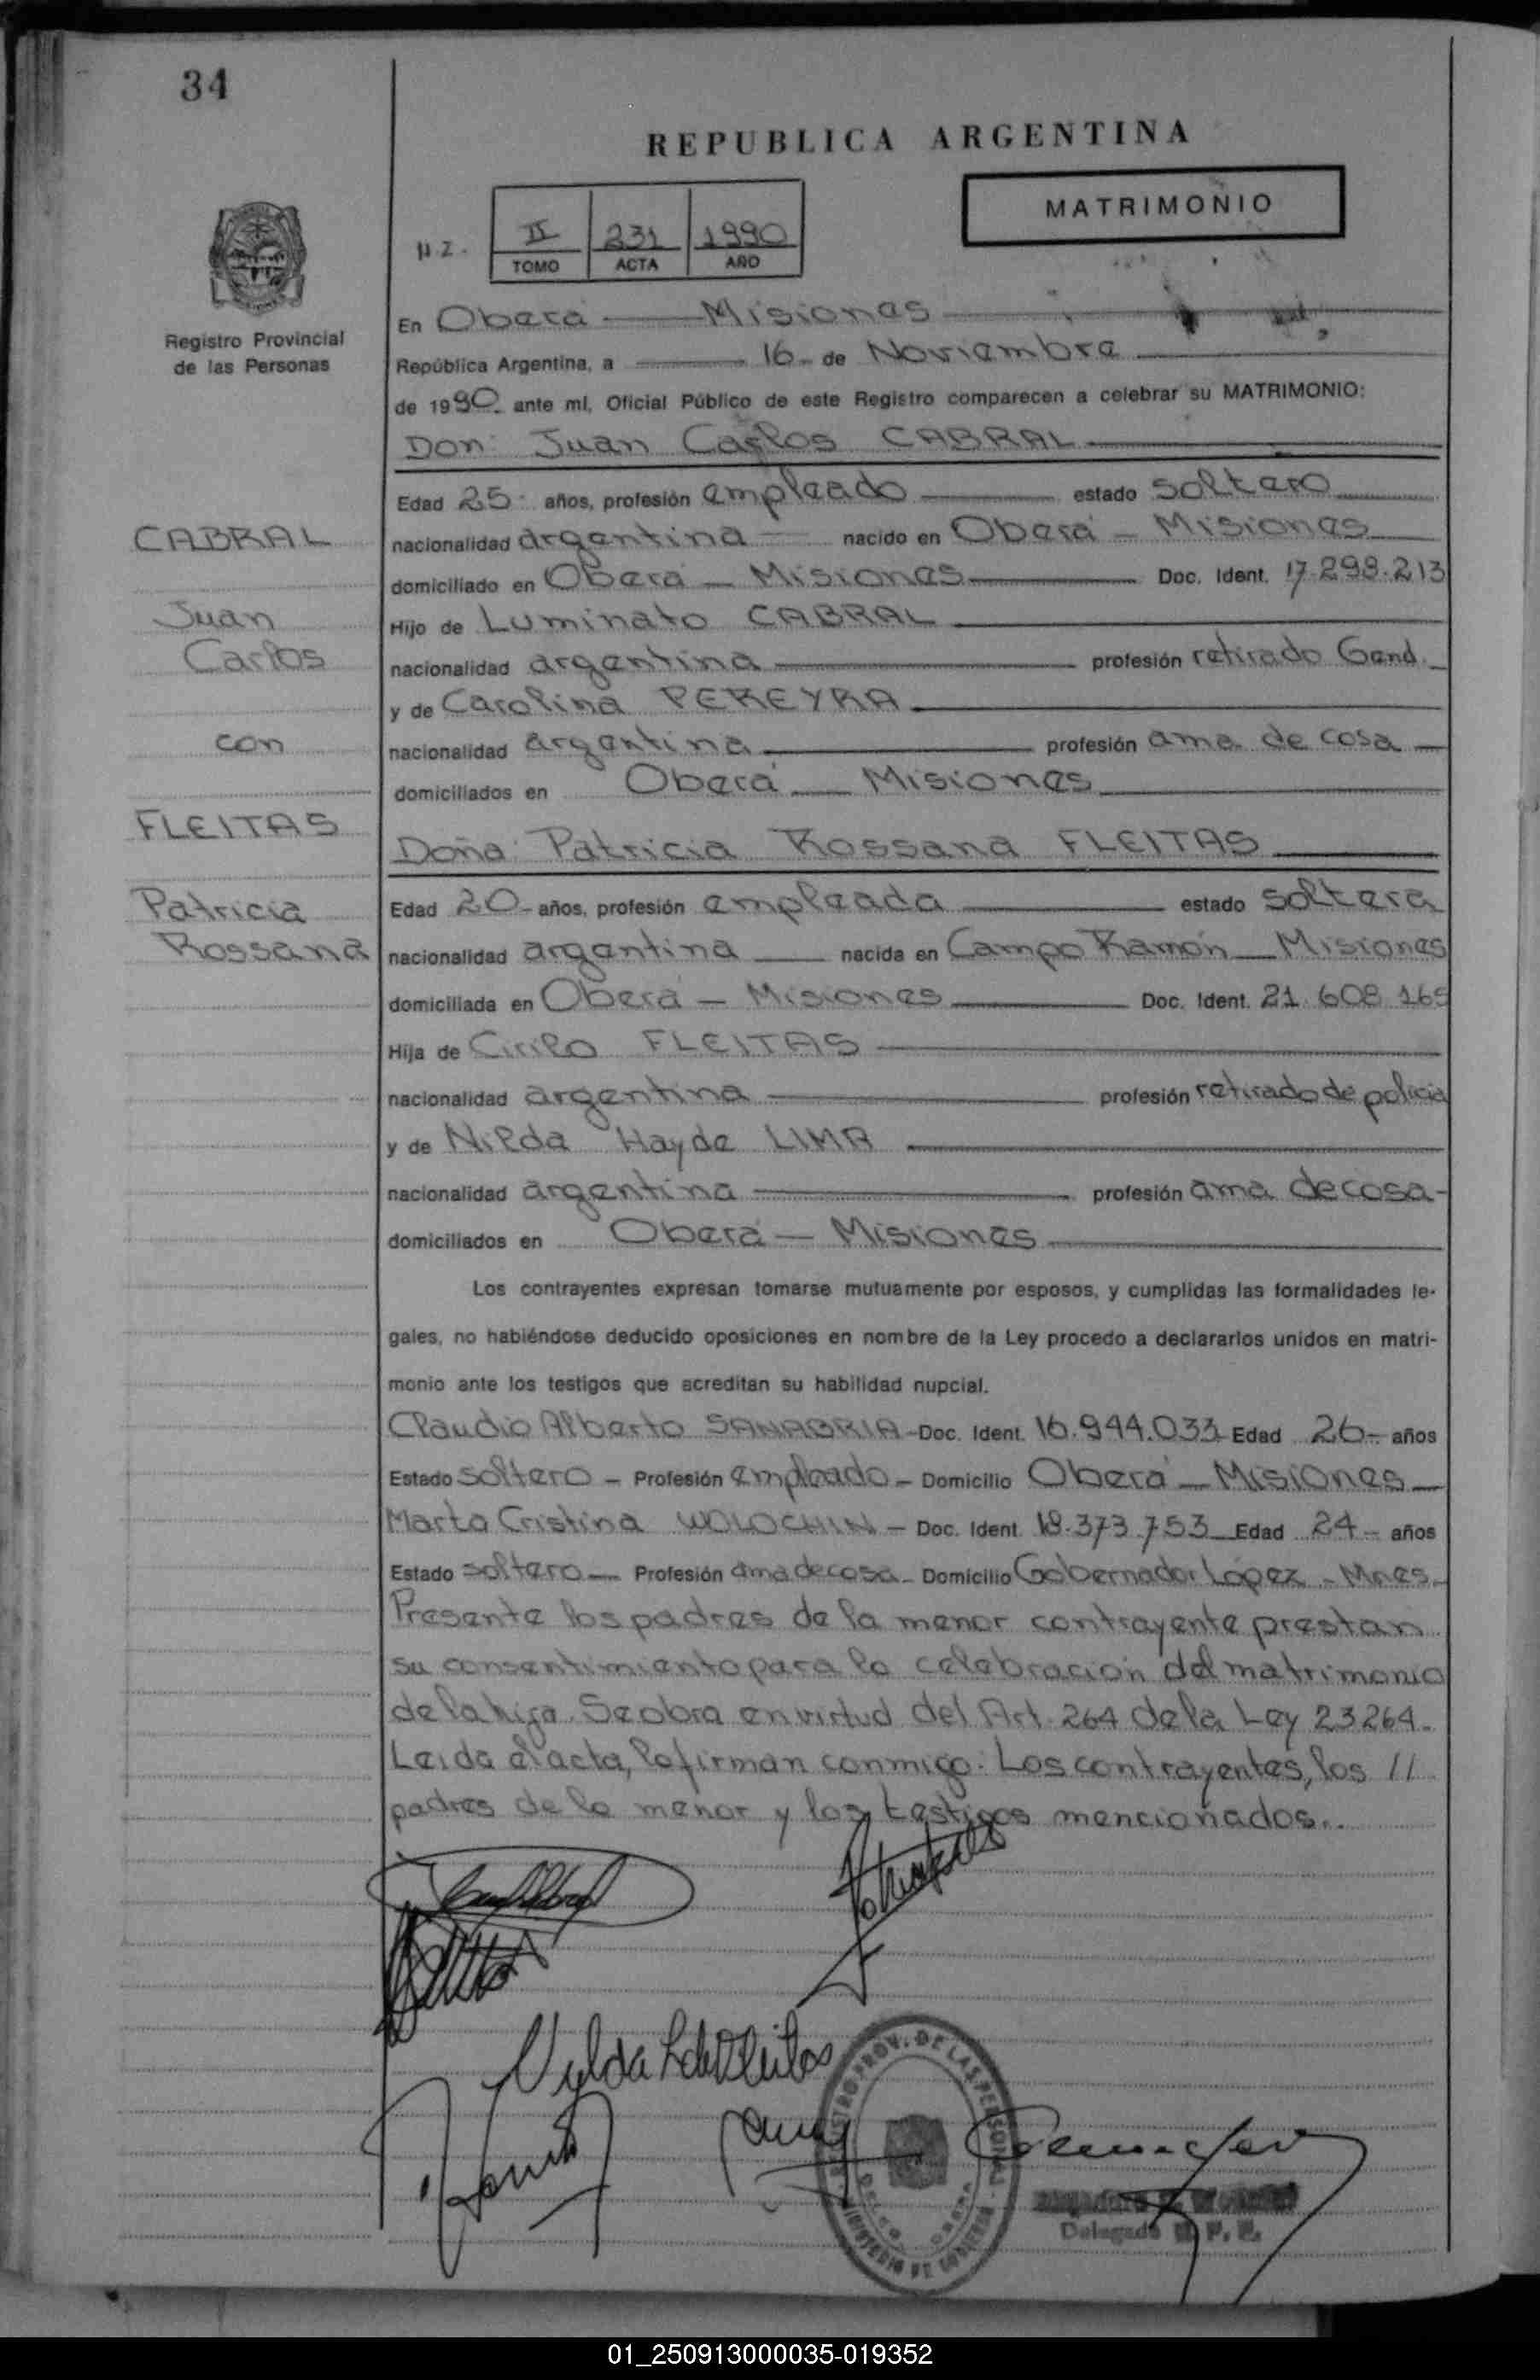 34
REPUBLICA ARGENTINA
MATRIMONIO
II 231 1990
TOMO ACTA AÑO
Registro Provincial
de las Personas
En Oberá — Misiones
República Argentina, a — 16 - de Noviembre
de 1990. ante mí, Oficial Público de este Registro comparecen a celebrar su MATRIMONIO:
Don: Juan Carlos CABRAL
Edad 25- años, profesión empleado — estado soltero
CABRAL
nacionalidad argentina — nacido en Oberá - Misiones
domiciliado en Oberá - Misiones — Doc. Ident. 17.298.213
Juan
Hijo de Luminato CABRAL
Carlos
nacionalidad argentina — profesión retirado Gend.
y de Carolina PEREYRA
con
nacionalidad argentina — profesión ama de casa
domiciliados en Oberá — Misiones
FLEITAS
Doña: Patricia Rossana FLEITAS
Patricia
Edad 20- años, profesión empleada — estado soltera
Rossana
nacionalidad argentina — nacida en Campo Ramón - Misiones
domiciliada en Oberá - Misiones — Doc. Ident. 21.608.165
Hija de Cirilo FLEITAS
nacionalidad argentina — profesión retirado de policia
y de Nilda Hayde LIMA
nacionalidad argentina — profesión ama de casa-
domiciliados en Oberá — Misiones
Los contrayentes expresan tomarse mutuamente por esposos, y cumplidas las formalidades le-
gales, no habiéndose deducido oposiciones en nombre de la Ley procedo a declararlos unidos en matri-
monio ante los testigos que acreditan su habilidad nupcial.
Claudio Alberto SANABRIA - Doc. Ident. 16.944.033 Edad 26- años
Estado soltero - Profesión empleado - Domicilio Oberá - Misiones
Marta Cristina WOLOCHIN - Doc. Ident. 18.373.753 Edad 24- años
Estado soltera — Profesión ama de casa - Domicilio Gobernador López - Mnes.
Presente los padres de la menor contrayente prestan
su consentimiento para la celebración del matrimonio
de la hija. Se obra en virtud del Art. 264 de la Ley 23264.
Leida el acta, la firman conmigo: Los contrayentes, los //
padres de la menor y los testigos mencionados..
Nylda L de Fleitas
REGISTRO PROV. DE LAS PERSONAS
MINISTERIO DE GOBIERNO
Delegado
01_250913000035-019352